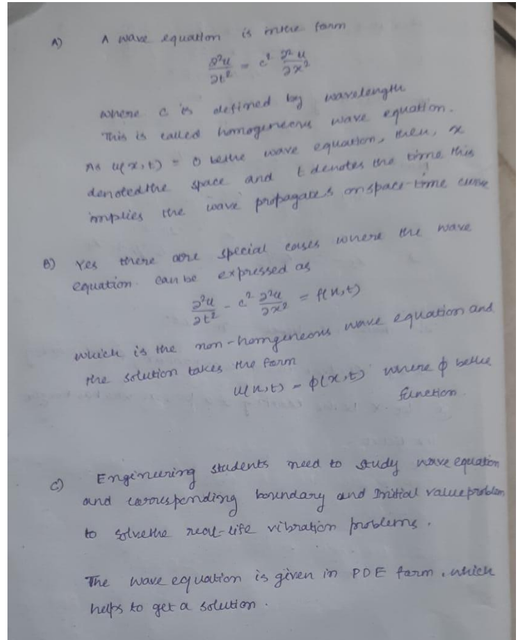 A) A wave equation is in the form
∂²u/∂t² = c² ∂²u/∂x²
where c is defined by wavelength
This is called homogeneous wave equation.
As u(x,t) = 0 be the wave equation, then, x
denoted the space and t denotes the time this
implies the wave propagates on space-time curve
B) Yes there are special cases where the wave
equation can be expressed as
∂²u/∂t² - c² ∂²u/∂x² = f(x,t)
which is the non-homgeneous wave equation and
the solution takes the form
u(x,t) = φ(x,t) where φ be the
function.
c) Engineering students need to study wave equation
and corrusponding boundary and Initial value problem
to solve the real-life vibration problems.
The wave equation is given in PDE form, which
helps to get a solution.